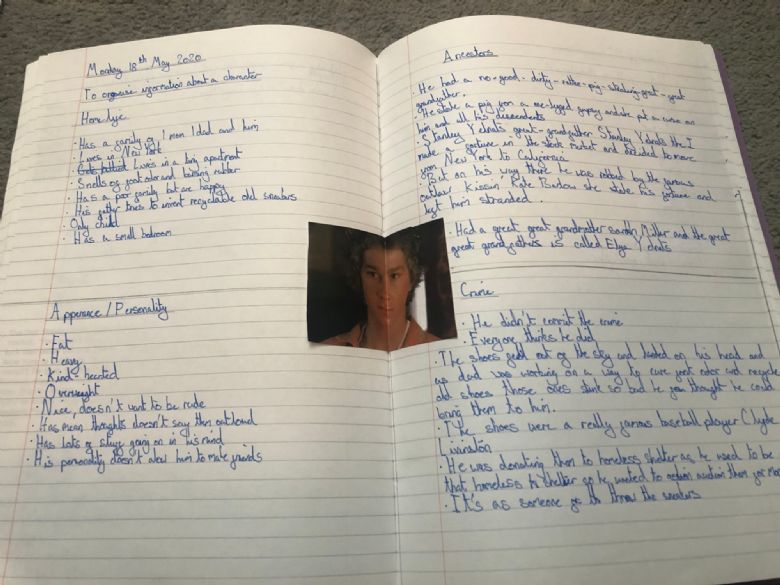 Monday 18th May 2020
To organise information about a character
Home life
· Has a family of 1 mom 1 dad and him
· Lives in New York
Lives in a tiny apartment
· Smells of foot odor and burning rubber
· Has a poor family but are happy
· His father tries to invent recyclable old sneakers
· Only child
· Has a small bedroom
Apperance / Personality
· Fat
· Heavy
· Kind-hearted
· Overweight
· Nice, doesn't want to be rude
· Has mean thoughts doesn't say them outloud
· Has lots of going on in his mind
· His personality doesn't alow him to make friends
Ancestors
· He had a no-good-dirty-rotten-pig-stealing-great-great
grandfather.
· He stole a pig from a one-legged gypsy and she put a curse on
him and all his descendents
· Stanley Yelnats great-grandfather Stanley Yelnats the I
made a fortune in the stock market and decided to move
from New York to California
· But on his way there he was robbed by the famous
outlaw Kissin Kate Barlow she stole his fortune and
left him stranded.
· Had a great great grandmother sarah Miller and the great
great grandfathers is called Elya Yelnats
Crime
· He didn't commit the crime
· Everyone thinks he did
· The shoes fell out of the sky and landed on his head and
as dad was working on a way to cure foot odor and recycle
old shoes those ones stunk so bad he thought he could
bring them to him.
· The shoes were a really famous baseball player Clyde
Livinston
· He was donating them to homeless shelter as he used to be
that homeless shelter so he wanted to auction them for more
· It's as someone threw the sneakers